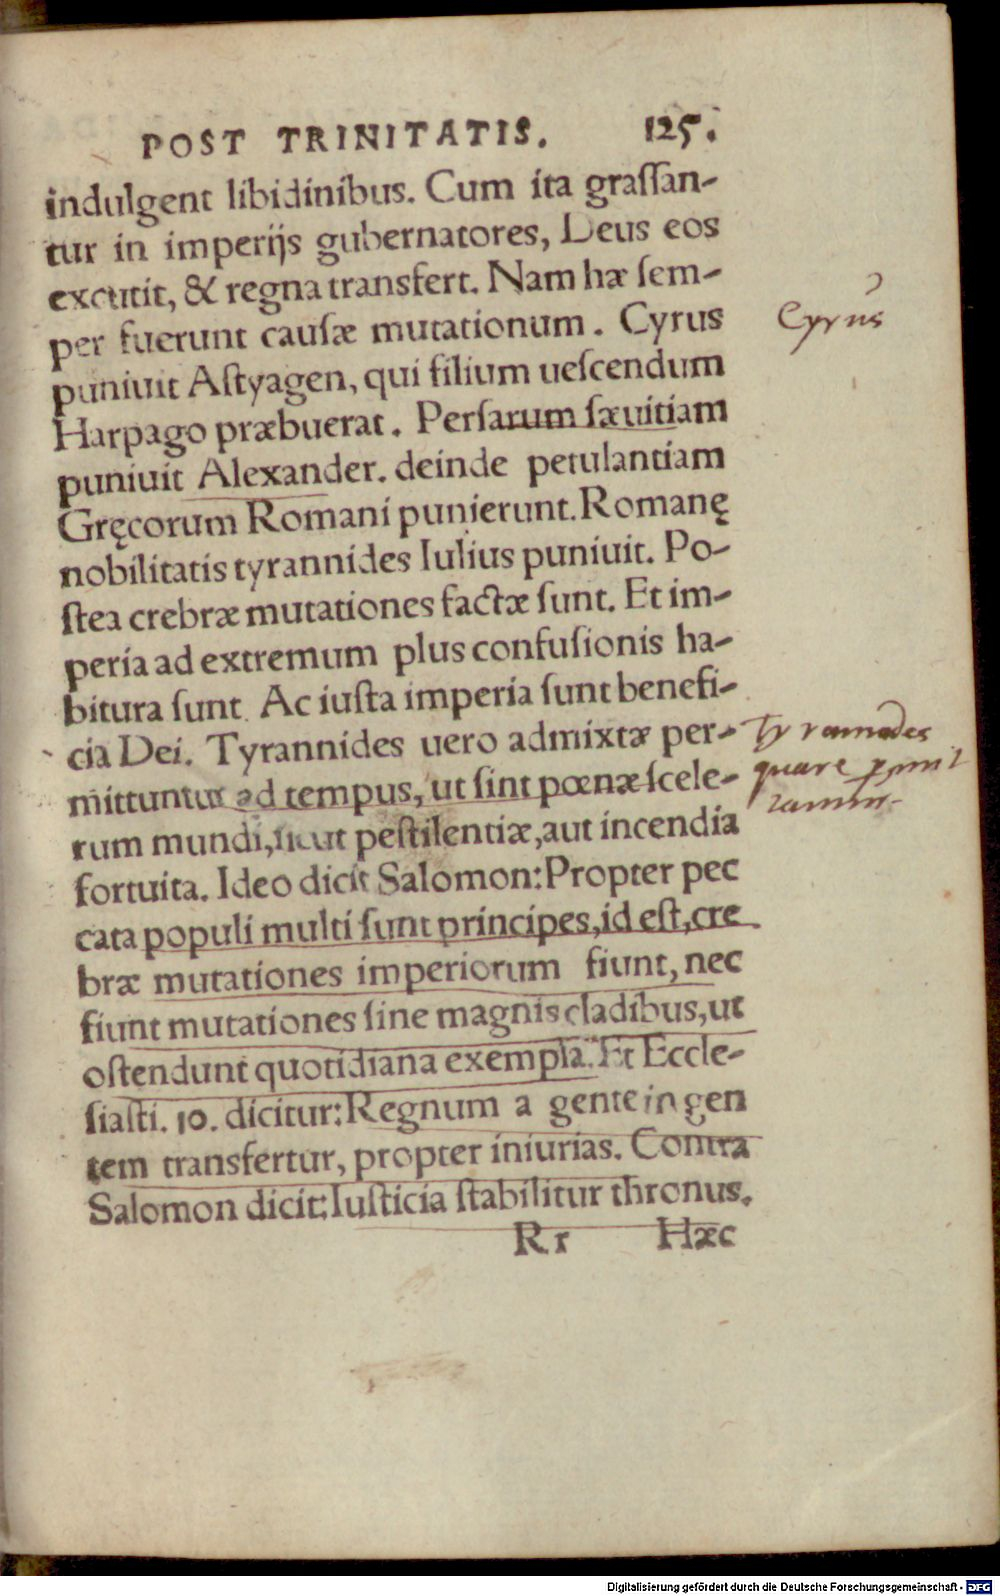 POST TRINITATIS. 125.
indulgent libidinibus. Cum ita graſſan-
tur in imperijs gubernatores, Deus eos
excutit, & regna transfert. Nam hæ ſem-
per fuerunt cauſæ mutationum. Cyrus
Cyrus
puniuit Aſtyagen, qui filium ueſcendum
Harpago præbuerat. Perſarum ſæuitiam
puniuit Alexander. deinde petulantiam
Gręcorum Romani punierunt. Romanę
nobilitatis tyrannides Iulius puniuit. Po-
ſtea crebræ mutationes factæ ſunt. Et im-
peria ad extremum plus confuſionis ha-
bitura ſunt. Ac iuſta imperia ſunt benefi-
cia Dei. Tyrannides uero admixtæ per-
mittuntur ad tempus, ut ſint pœnæ ſcele-
Tyrannides
quare
rum mundi, ſicut peſtilentiæ, aut incendia
fortuita. Ideo dicit Salomon: Propter pec
cata populi multi ſunt principes, id eſt, cre
bræ mutationes imperiorum fiunt, nec
fiunt mutationes ſine magnis cladibus, ut
oſtendunt quotidiana exempla. Et Eccle-
ſiaſti. 10. dicitur: Regnum a gente in gen
tem transfertur, propter iniurias. Contra
Salomon dicit: Iuſticia ſtabilitur thronus.
Rr Hæc
Digitalisierung gefördert durch die Deutsche Forschungsgemeinschaft - DFG